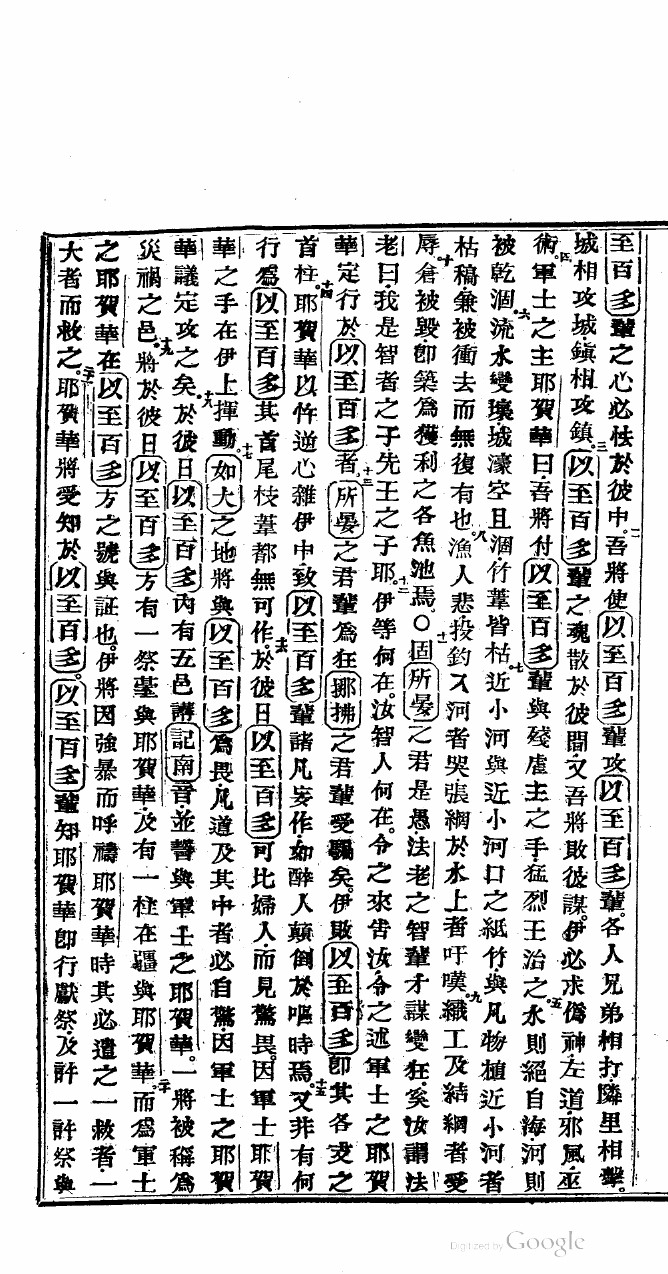 至百多輩之心必怯於彼中。二吾將使以至百多輩攻以至百多輩。各人兄弟相打隣里相擊。
城相攻城鎮相攻鎮。三以至百多輩之魂散於彼間又吾將敗彼謀。伊必求僞神左道邪風巫
術。四軍士之主耶賀華曰吾將付以至百多輩與殘虐主之手猛烈王治之。五水則絕自海河則
被乾涸。六流水變壞城濠空且涸竹葦皆枯。七近小河與近小河口之紙竹與凡物植近小河者
枯稿兼被衝去而無復有也。八漁人悲投釣入河者哭張網於水上者吁嘆。九織工及結網者受
辱。十倉被毀卽築爲獲利之各魚池焉。〇十一固所晏之君是愚法老之智輩才謀變狂奚汝謂法
老曰我是智者之子先王之子耶。十二伊等何在汝智人何在。令之來告汝令之述軍士之耶賀
華定行於以至百多者。十三所晏之君輩爲狂挪拂之君輩受騙矣。伊敗以至百多卽其各支之
首柱。十四耶賀華以忤逆心雜伊中致以至百多輩諸凡妄作如醉人顛倒於嘔時焉。十五又非有何
行爲以至百多其首尾枝葦都無可作。十六於彼日以至百多可比婦人而見驚畏。因軍士耶賀
華之手在伊上揮動。十七如大之地將與以至百多爲畏凡道及其中者必自驚因軍士之耶賀
華議定攻之矣。十八於彼日以至百多內有五邑講記南音並誓與軍士之耶賀華。一將被稱爲
災禍之邑。十九將於彼日以至百多方有一祭臺與耶賀華及有一柱在疆與耶賀華。二十而爲軍士
之耶賀華在以至百多方之號與証也。伊將因強暴而呼禱耶賀華時其必遣之一救者一
大者而救之。二十一耶賀華將受知於以至百多。以至百多輩知耶賀華卽行獻祭及許一許祭與
Digitized by Google